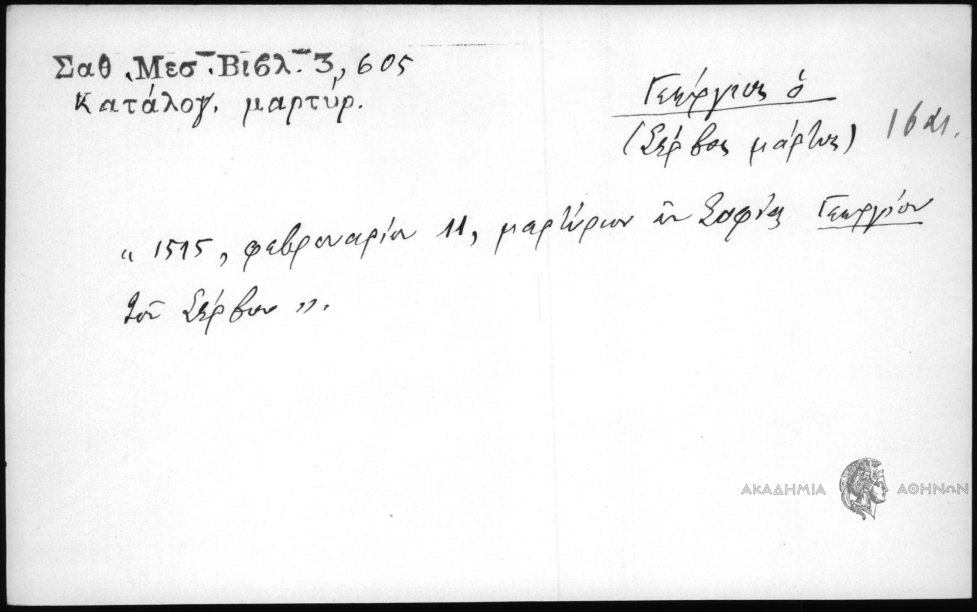 Σαθ. Μεσ. Βιβλ. 3, 605
Κατάλογ. μαρτύρ.
Γεώργιος ὁ
(Σέρβος μάρτυς) 16 αι.
« 1515, φεβρουαρίου 11, μαρτύριον ἐν Σοφίᾳ Γεωργίου
τοῦ Σέρβου ».
ΑΚΑΔΗΜΙΑ ΑΘΗΝΩΝ